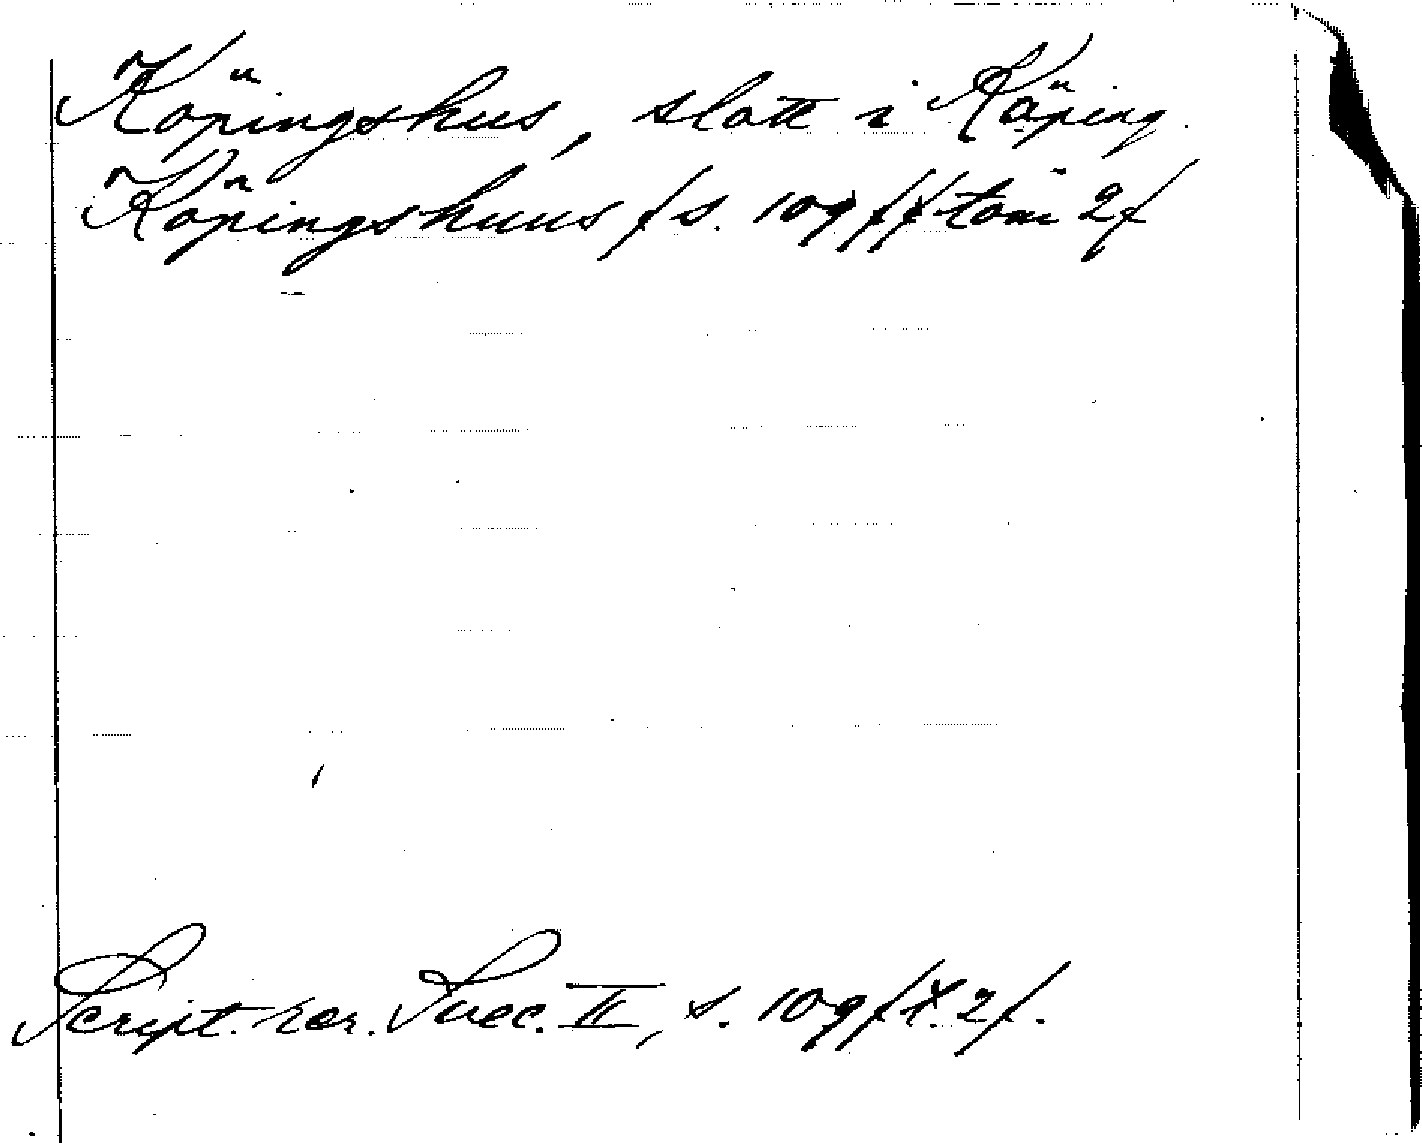 Köpingshus, slott i Köping.
Köpingshuus / s. 109 / / tom 2/
Script. rer. Svec. II, s. 109 / t. 2/.